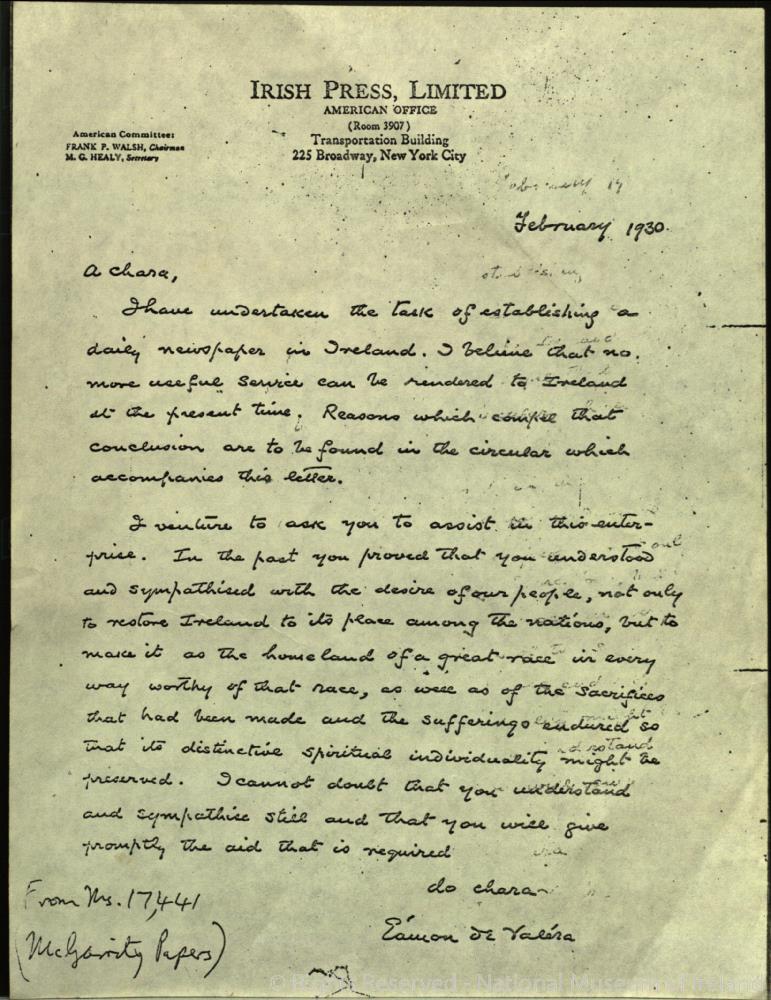 IRISH PRESS, LIMITED
AMERICAN OFFICE
(Room 3907)
Transportation Building
225 Broadway, New York City
American Committee:
FRANK P. WALSH, Chairman
M. G. HEALY, Secretary
February 1930.
A chara,
I have undertaken the task of establishing a
daily newspaper in Ireland. I believe that no
more useful service can be rendered to Ireland
at the present time. Reasons which compel that
conclusion are to be found in the circular which
accompanies this letter.
I venture to ask you to assist in this enter-
prise. In the past you proved that you understood
and sympathised with the desire of our people, not only
to restore Ireland to its place among the nations, but to
make it as the homeland of a great race in every
way worthy of that race, as well as of the sacrifices
that had been made and the sufferings endured so
that its distinctive spiritual individuality might be
preserved. I cannot doubt that you understand
and sympathise still and that you will give
promptly the aid that is required
do chara
Éamon de Valéra
From Ms. 17,441
(McGarrity Papers)
© Rights Reserved - National Museum of Ireland